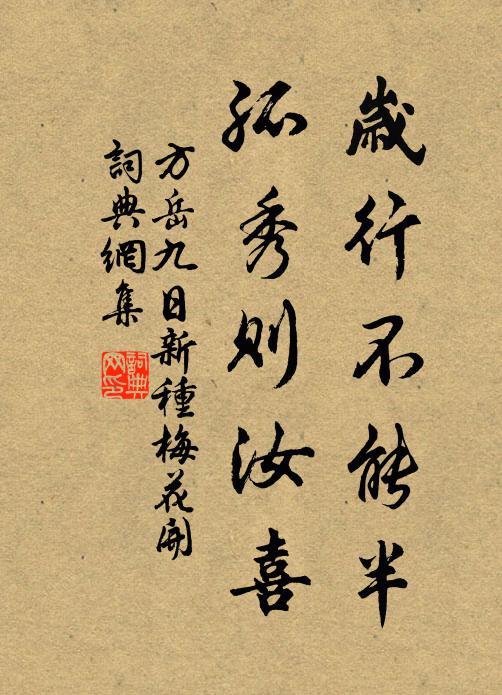 歲行不能半
孤秀則汝喜
方岳九日新種梅花開
詞典網集
詞典
网印